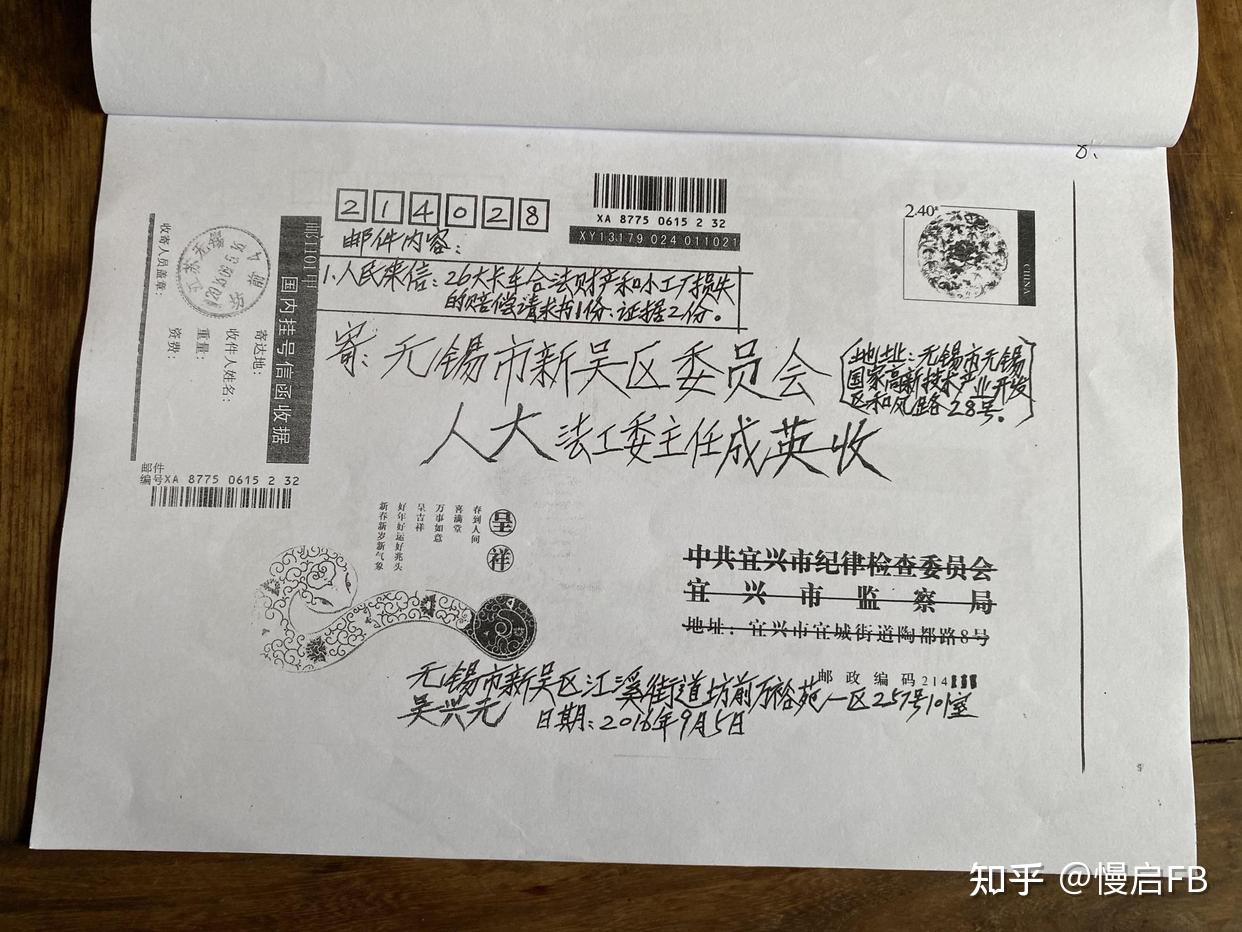 8.
214028
XA 8775 0615 2 32
XY13179 024 011021
2.40元
CHINA
邮件内容:
1.人民来信:26大卡车合法财产和小工厂损失
的赔偿请求书1份;证据2份。
寄:无锡市新吴区委员会
人大法工委主任成英收
地址:无锡市无锡
国家高新技术产业开发
区和风路28号。
国内挂号信函收据
寄达地:
收件人姓名:
重量:
资费:
收寄人员盖章:
邮件
编号XA 8775 0615 2 32
呈祥
春到人间
喜满堂
万事如意
呈吉祥
好年好运好兆头
新春新岁新气象
中共宜兴市纪律检查委员会
宜兴市监察局
地址:宜兴市宜城街道陶都路8号
邮政编码214
无锡市新吴区江溪街道坊前万裕苑一区257号101室
吴兴元 日期:2016年9月5日
知乎 @慢启FB